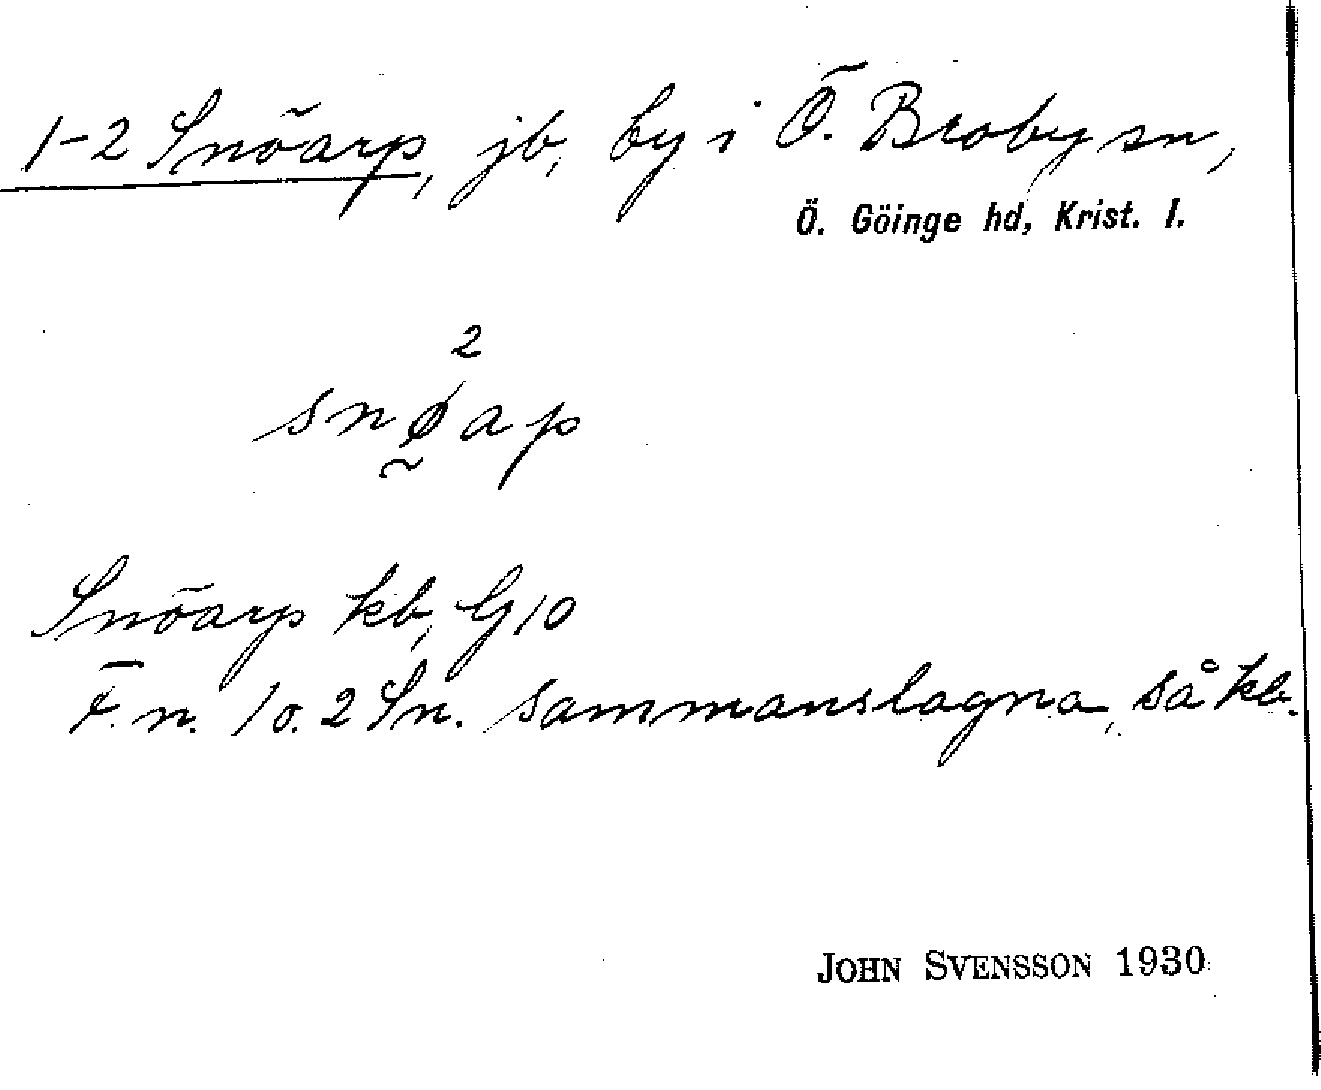 1-2 Snöarp, jb, by i Ö. Broby sn,
Ö. Göinge hd, Krist. l.
2
snøap
Snöarp kb, G10
F.n. 1 o. 2 Sn. sammanslagna, så kb.
JOHN SVENSSON 1930